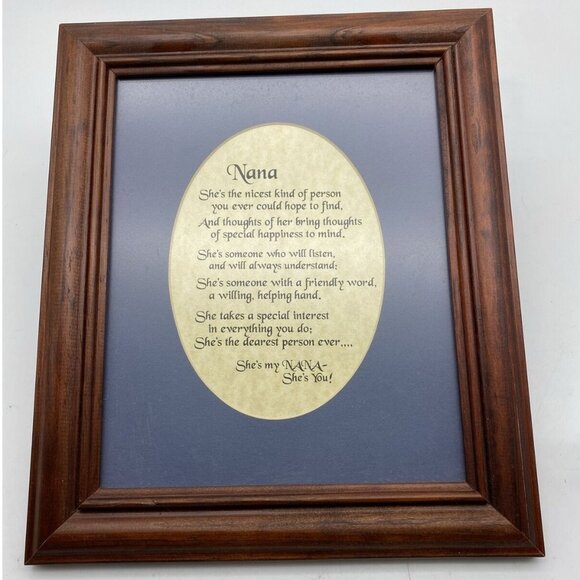 Nana
She's the nicest kind of person
you ever could hope to find,
And thoughts of her bring thoughts
of special happiness to mind.
She's someone who will listen,
and will always understand;
She's someone with a friendly word,
a willing, helping hand.
She takes a special interest
in everything you do;
She's the dearest person ever....
She's my NANA-
She's You!